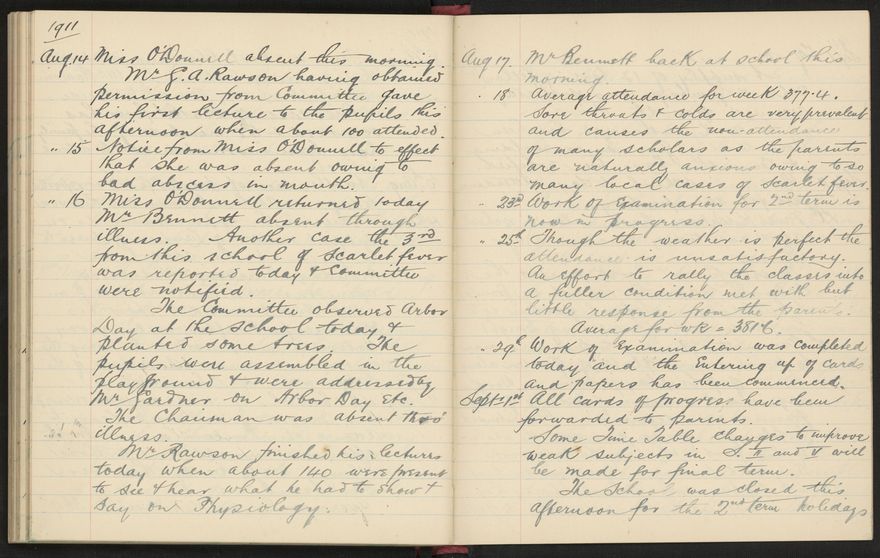 1911
Aug 14 Miss O'Donnell absent this morning.
Mr G. A. Rawson having obtained
permission from Committee gave
his first lecture to the pupils this
afternoon when about 100 attended.
" 15 Notice from Miss O'Donnell to effect
that she was absent owing to
bad abscess in mouth.
" 16 Miss O'Donnell returned today
Mr Bennett absent through
illness. Another case the 3rd
from this school of Scarlet fever
was reported today & Committee
were notified.
The Committee observed Arbor
Day at the School today &
planted some trees. The
pupils were assembled in the
playground & were addressed by
Mr Gardner on Arbor Day etc.
The Chairman was absent thro'
illness.
Mr Rawson finished his lectures
today when about 140 were present
to see & hear what he had to show &
say on Physiology.
Aug 17 Mr Bennett back at school this
morning.
" 18 Average attendance for week 377.4.
Sore throats & colds are very prevalent
and causes the non-attendance
of many scholars as the parents
are naturally anxious owing to so
many local cases of Scarlet fever.
" 23rd Work of Examination for 2nd term is
now in progress.
" 25th Though the weather is perfect the
attendance is unsatisfactory.
An effort to rally the classes into
a fuller condition met with but
little response from the parents.
Average for wk = 381.6.
" 29th Work of Examination was completed
today and the Entering up of cards
and papers has been commenced.
Sept 1st All cards of progress have been
forwarded to parents.
Some Time Table changes to improve
weak subjects in S. II and V will
be made for final term.
The School was closed this
afternoon for the 2nd term holidays